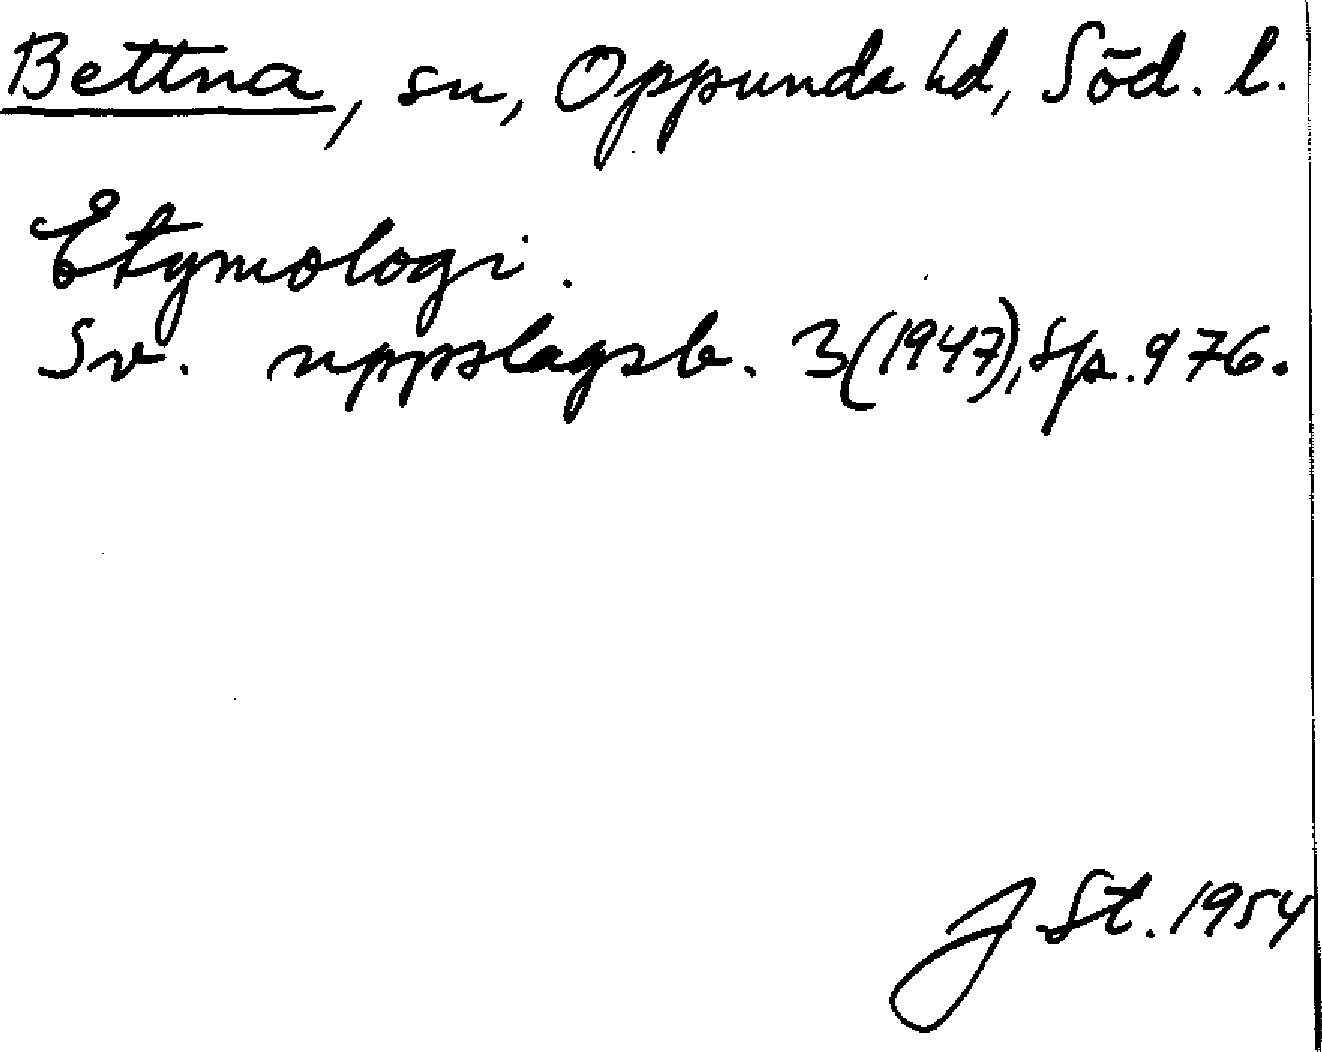 Bettna, sn, Oppunda hd, Söd. l.
Etymologi.
Sv. uppslagsb. 3(1947), sp. 976.
J St. 1954